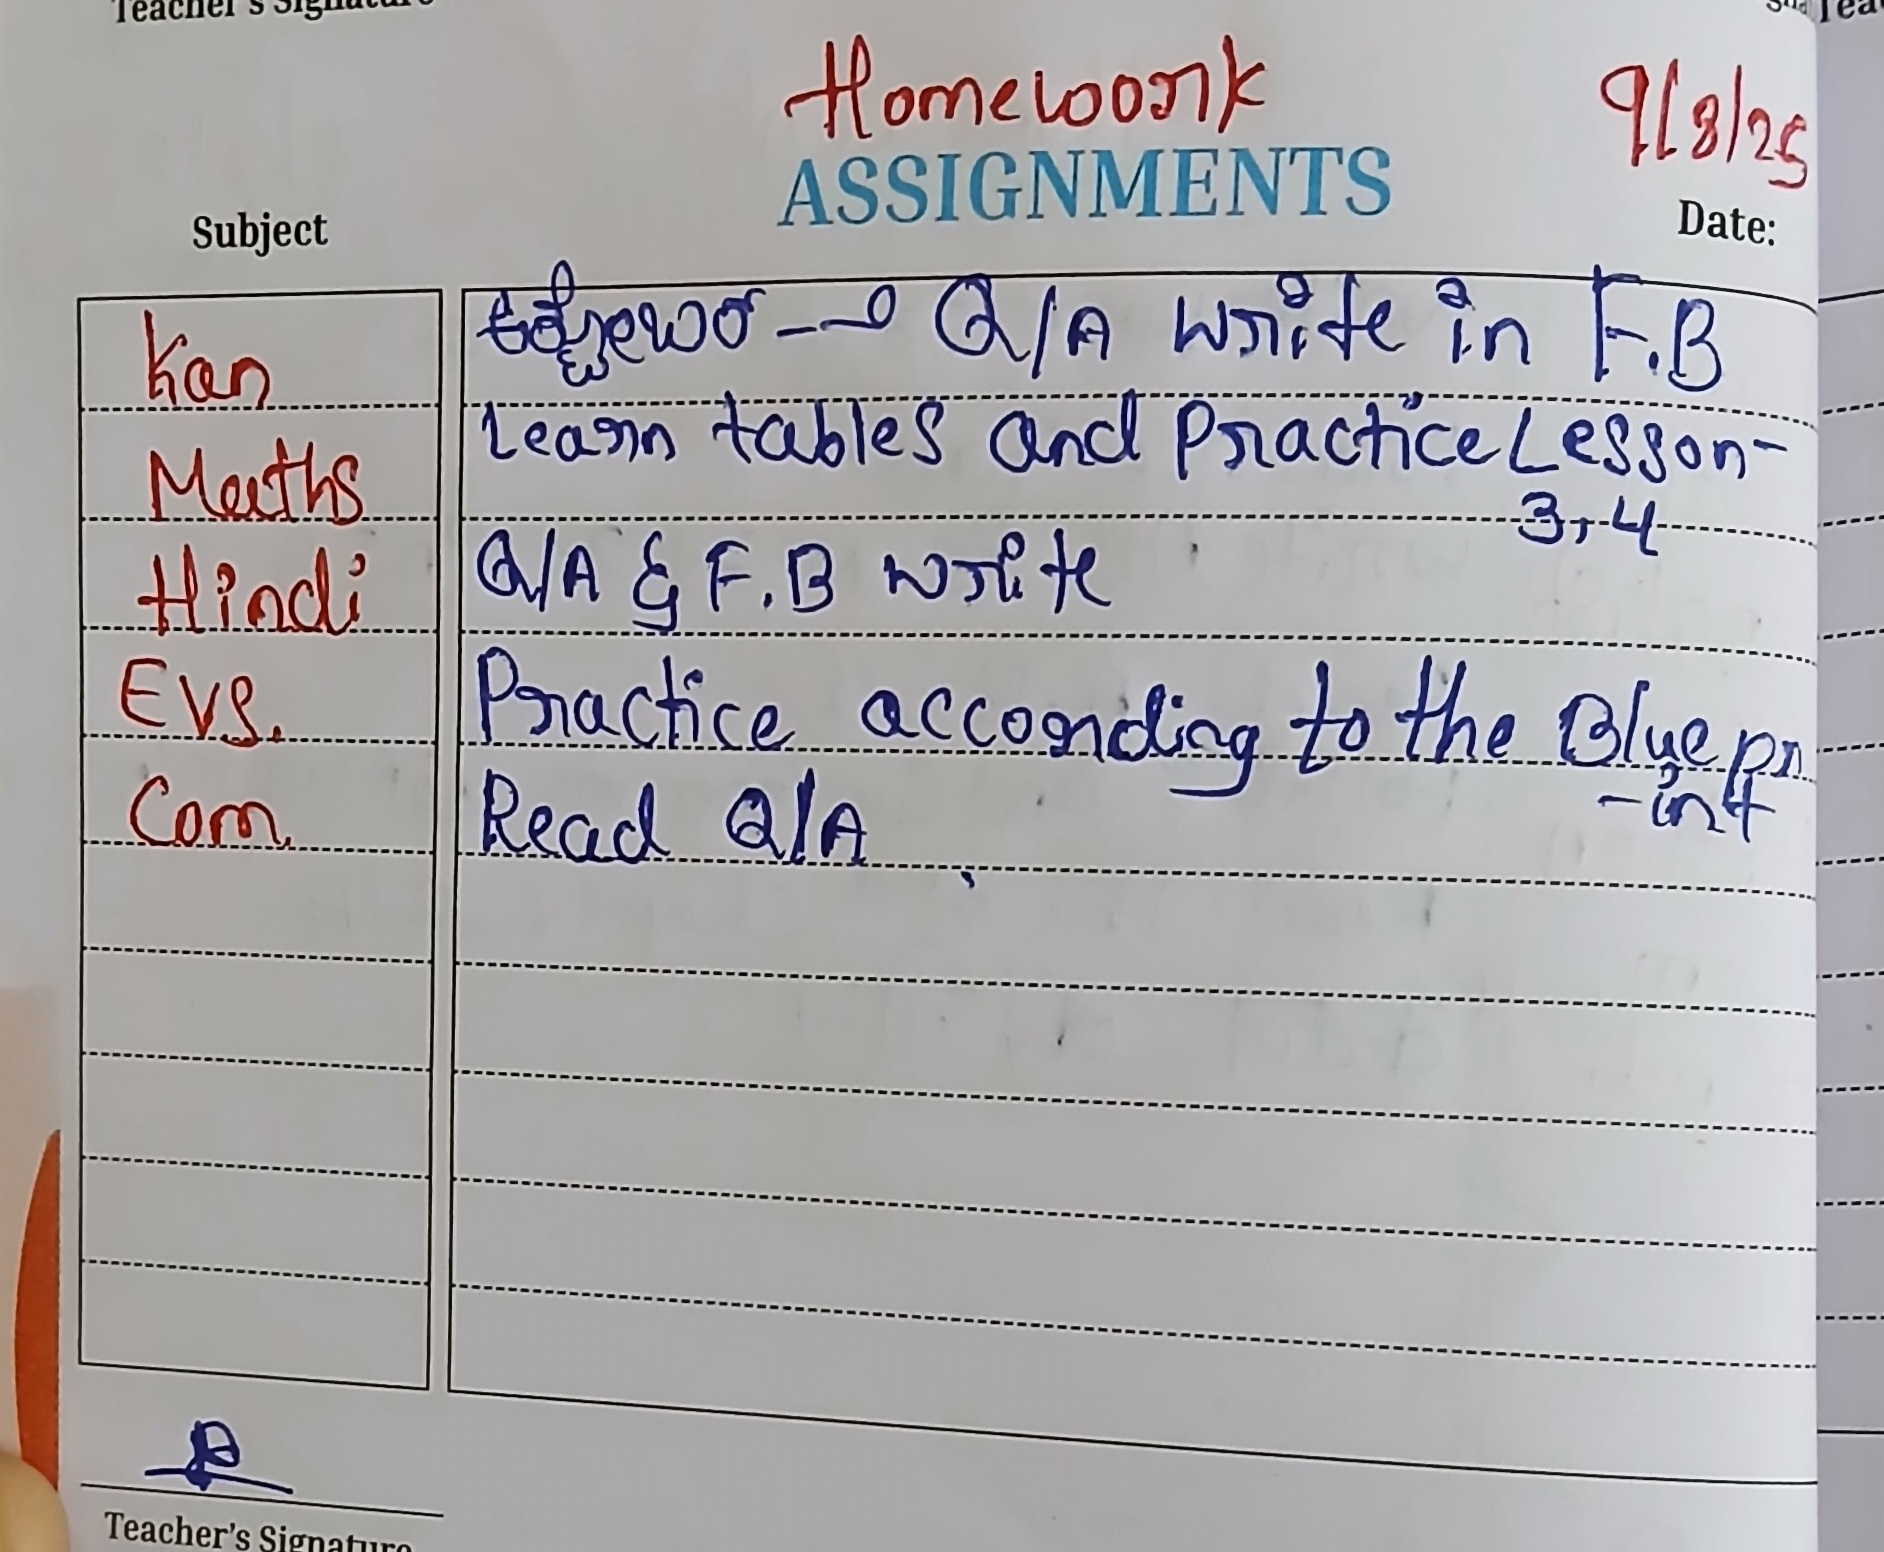 Teacher's Signature
Homework
9/8/25
ASSIGNMENTS
Subject
Date:
Kan
Q/A write in F.B
Maths
Learn tables and Practice Lesson-
3,4
Hindi
Q/A & F.B write
EVS.
Practice according to the Blue pr
-int
Com.
Read Q/A
Teacher's Signature